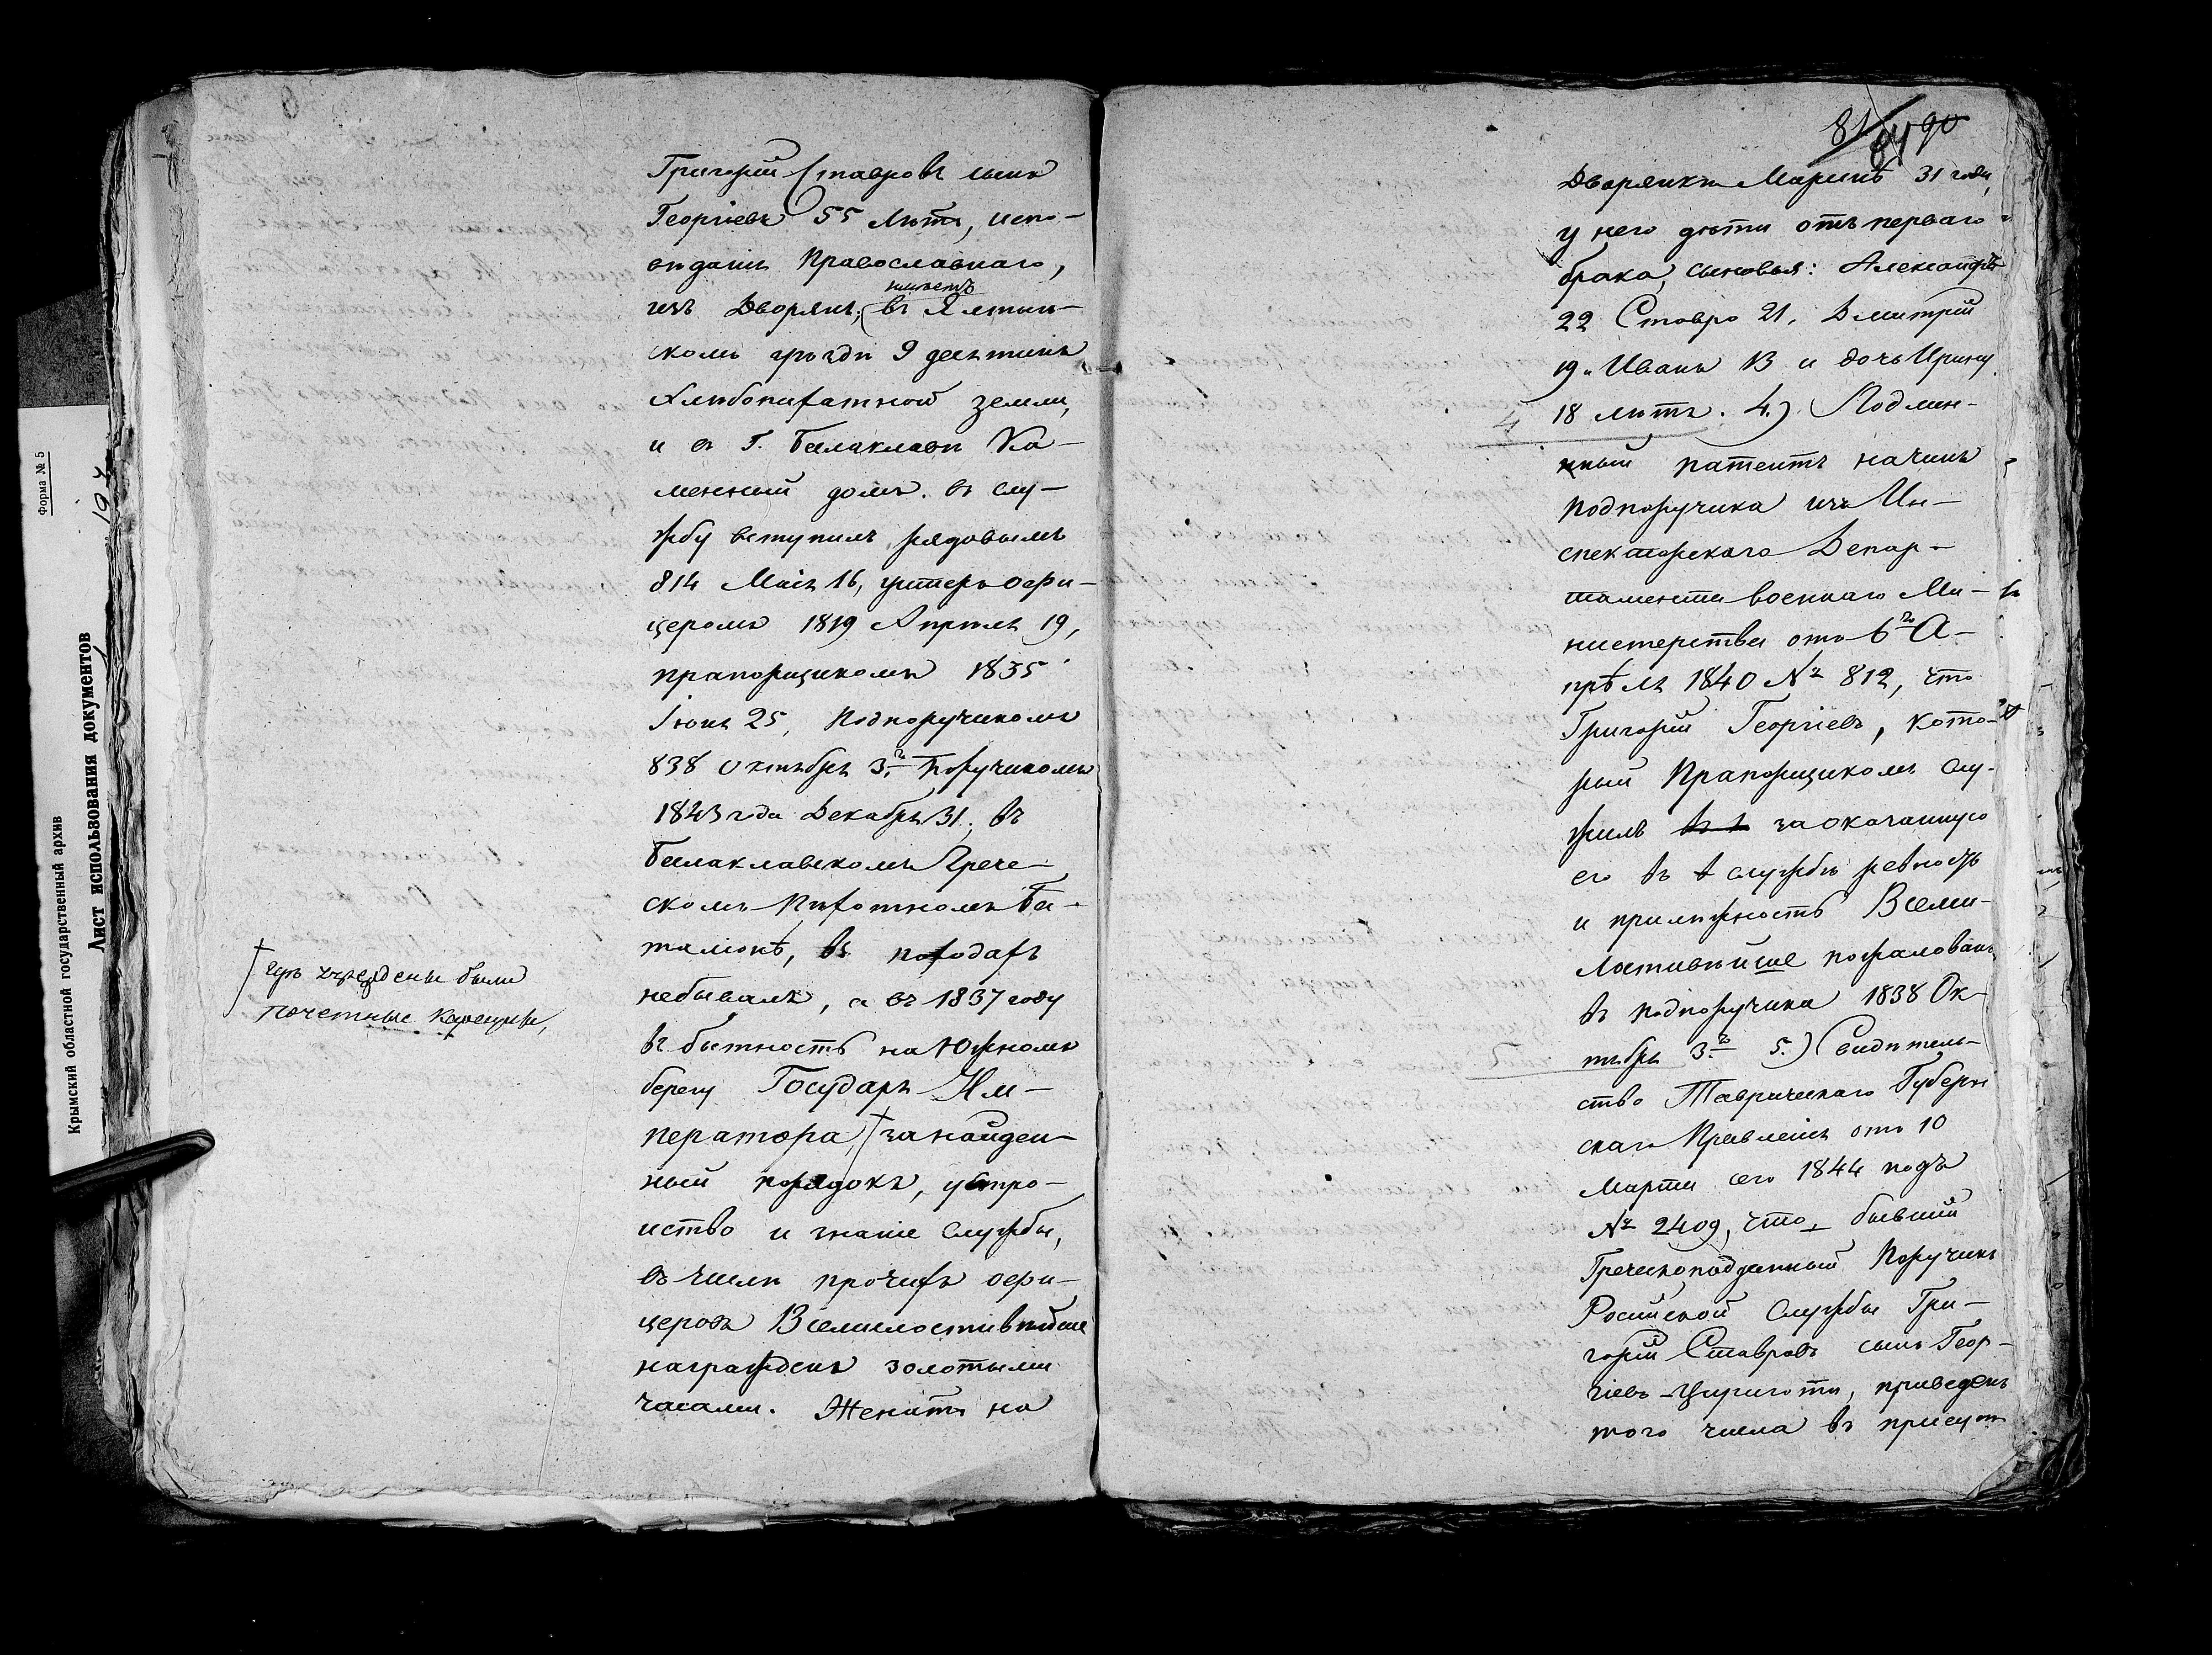 Форма № 5
Крымский областной государственный архив
Лист использования документов
Григорій Ставровъ сынъ
Георгіевъ 55 лѣтъ, испо-
вѣданія Православнаго,
имѣетъ
изъ Дворянъ, (въ Ялтин-
скомъ уѣздѣ 9 десятинъ
хлѣбопахатной земли,
и в Г. Балаклавѣ Ка-
менный домъ. въ слу-
жбу вступилъ рядовымъ
814 Маія 16, унтеръ офи-
церомъ 1819 Апрѣля 19,
прапорщикомъ 1835
Іюня 25, Подпоручикомъ
838 Октября 3. Поручикомъ
1843 года Декабря 31, въ
Балаклавскомъ Грече-
скомъ Пѣхотномъ Ба-
таліонѣ, въ походахъ
небывалъ, а въ 1837 году
въ бытность на Южномъ
берегу Государя Им-
ператора, за найден-
ный порядокъ, устро-
иство и знаніе службы,
въ числѣ прочихъ офи-
церовъ Всемилостивѣйше
награжденъ золотыми
часами. Женатъ на
гдѣ учреждены были
почетные караулы,
81 84 90
Дворянкѣ Маринѣ 31 года,
у него дѣти отъ перваго
брака, сыновья: Александръ
22 Ставро 21, Дмитрій
19, Иванъ 13 и дочь Ирина
4 18 лѣтъ. 4.) Подлин-
ный патентъ на чинъ
Подпоручика изъ Ин-
спекторскаго Депар-
тамента Военнаго Ми-
нистерства отъ 6го А-
прѣля 1840 № 812, что
Григорій Георгіевъ, кото-
рый Прапорщикомъ слу-
жилъ за оказанную
его въ службѣ ревность
и прилѣжность Всеми-
лостивѣйше пожалованъ
въ подпоручика 1838 Ок-
тября 3. 5.) Свидѣтель-
ство Таврическаго Губерн
скаго Правленія отъ 10
Марта сего 1844 подъ
№ 2409, что, бывшій
Греческоподданный Поручикъ
Россійской службы Гри-
горій Ставровъ сынъ Геор-
гіевъ-Цириготи, приведенъ
того числа въ присут